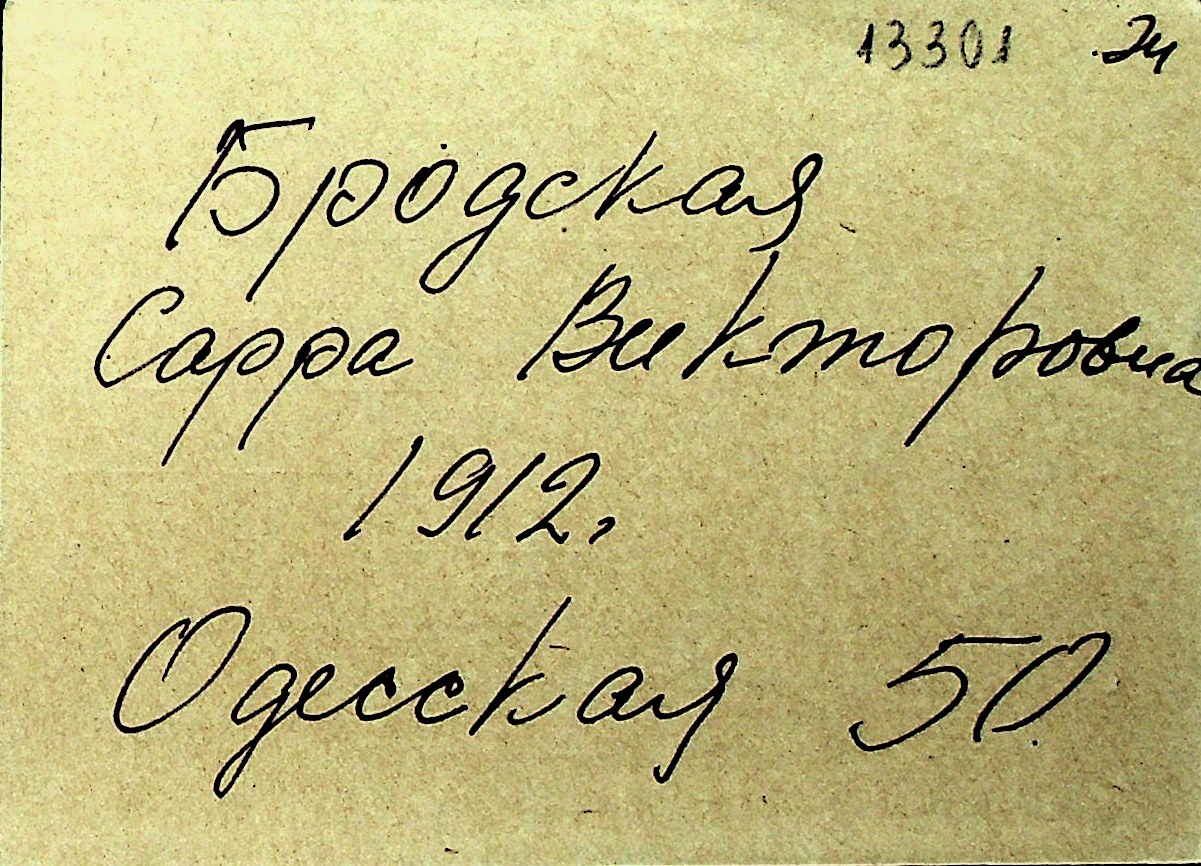 13301 24
Бродская
Сарра Викторовна
1912,
Одесская 50